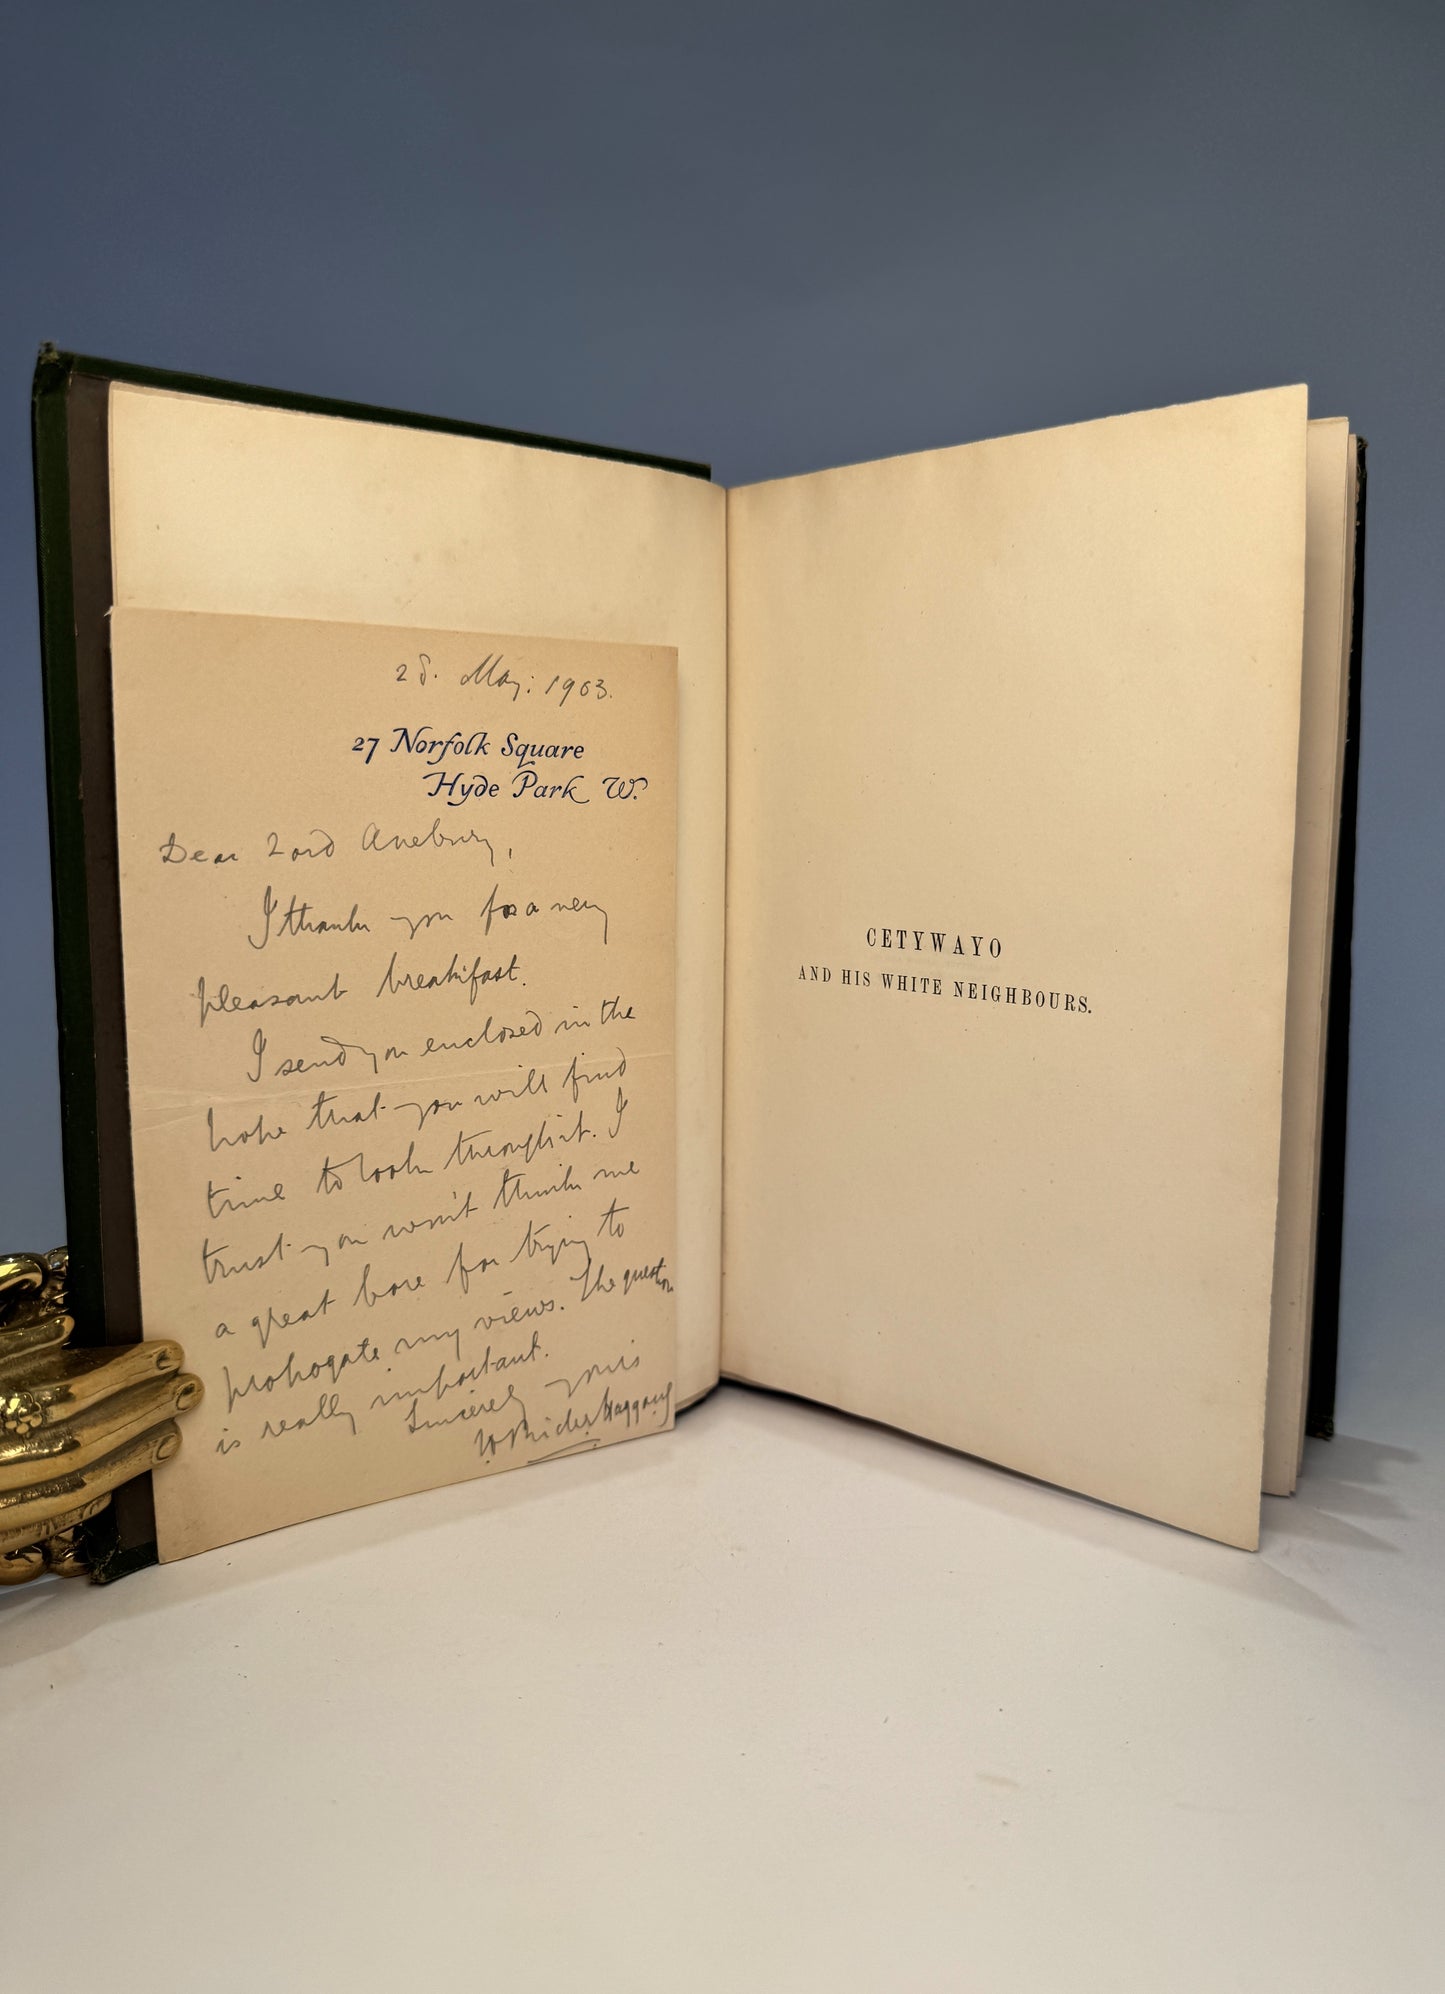 28. May: 1903.
27 Norfolk Square
Hyde Park W.
Dear Lord Avebury,
I thank you for a very
pleasant breakfast.
I send you enclosed in the
hope that you will find
time to look through it. I
trust you won't think me
a great bore for trying to
propogate my views. The question
is really important.
Sincerely yours
H Rider Haggard
CETYWAYO
AND HIS WHITE NEIGHBOURS.